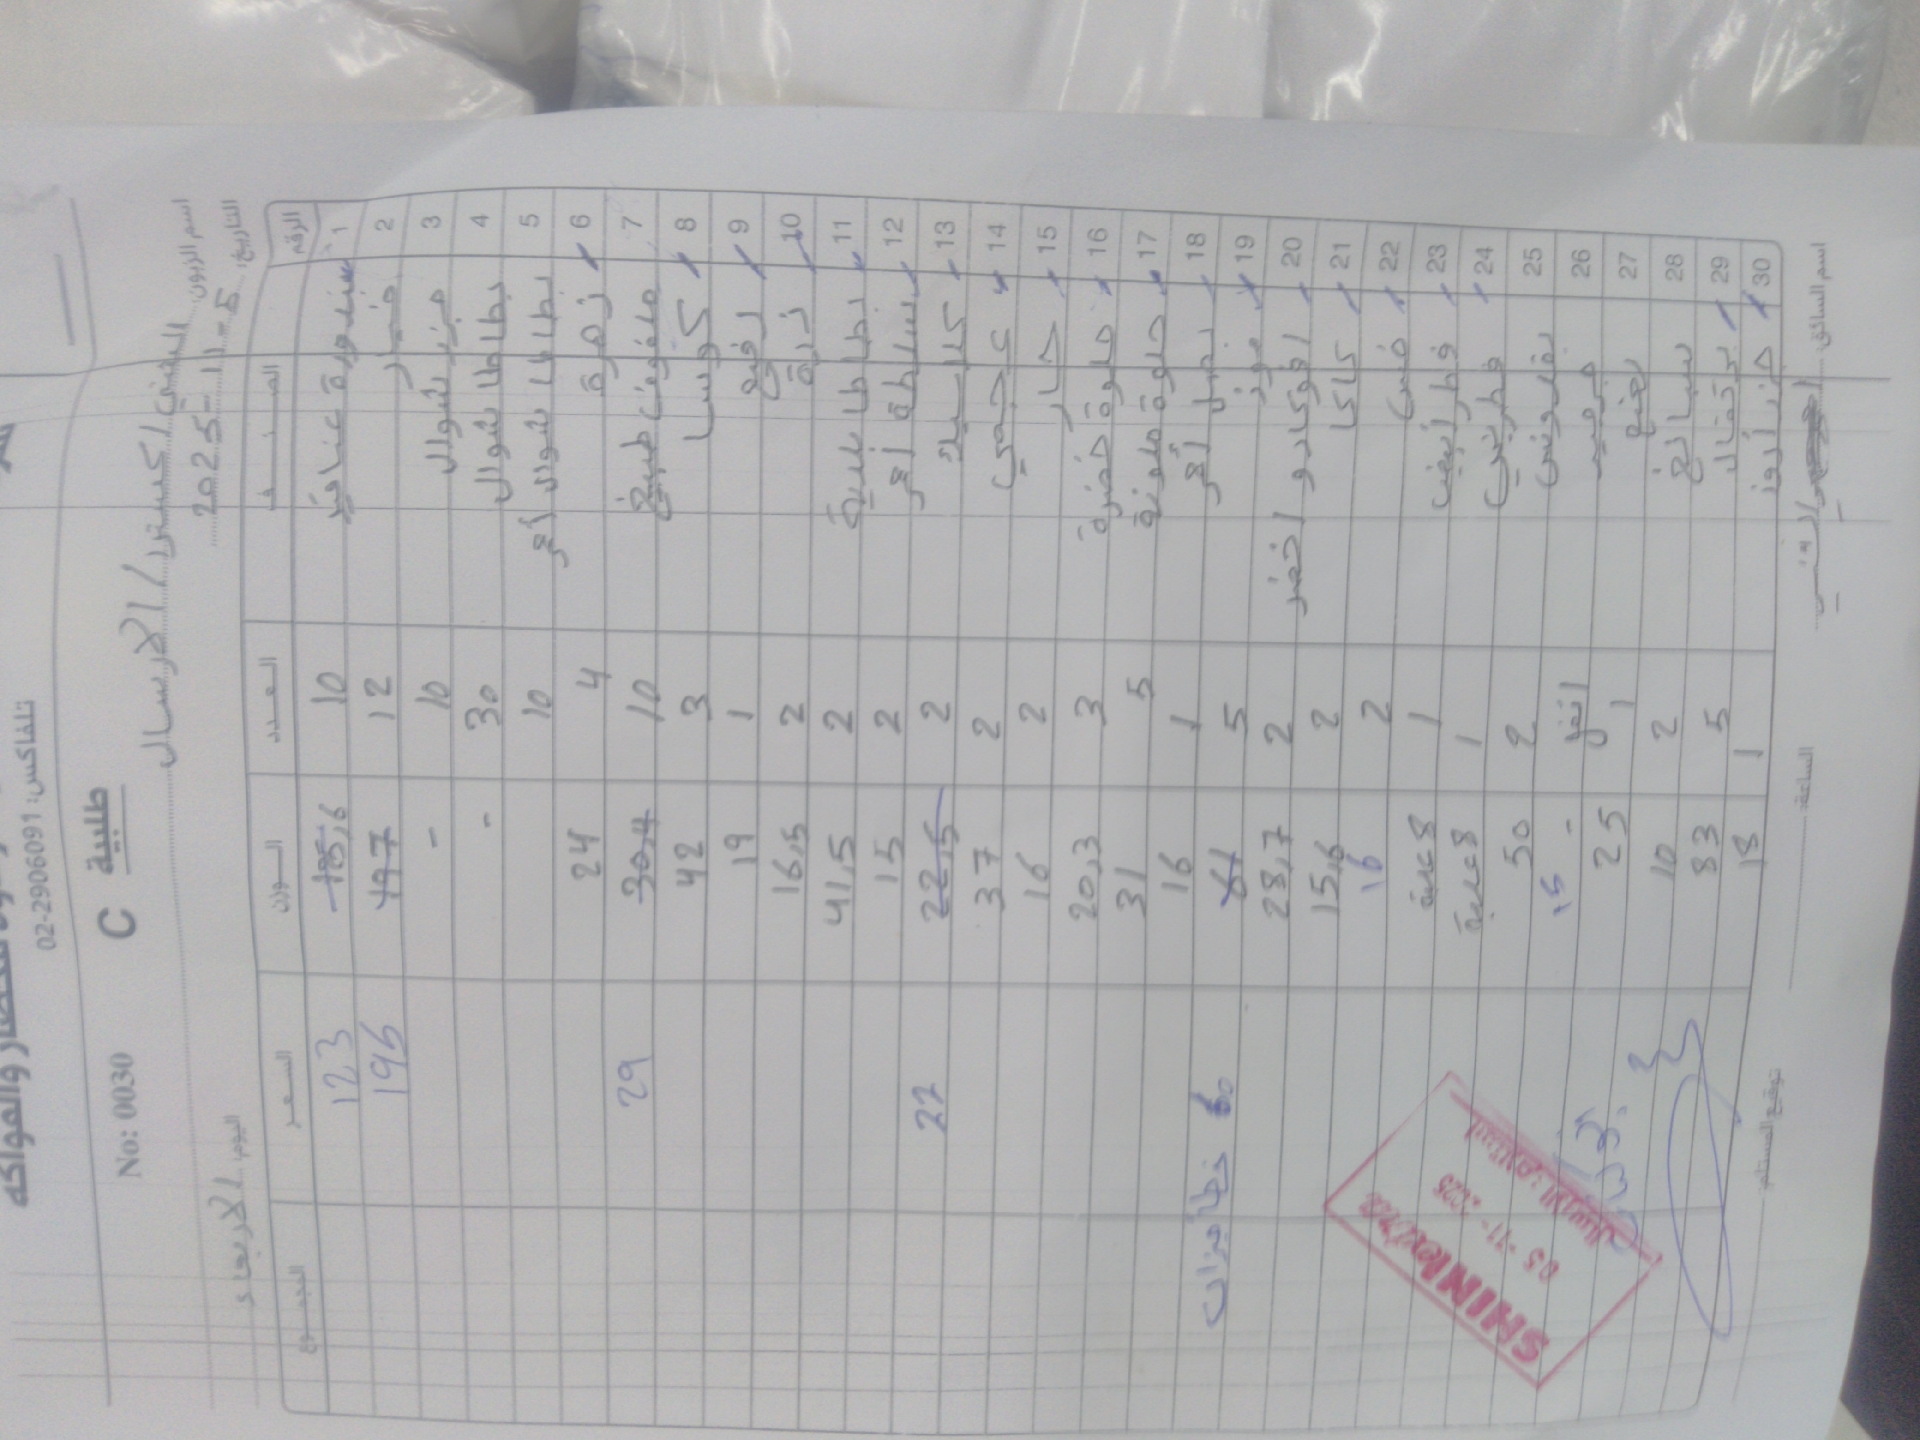 والفواكه
تلفاكس: 02-2906091
No: 0030 C طلبية
اسم الزبون: اكسترا / الارسال
التاريخ: 5-11-2025 اليوم: الاربعاء
الرقم الصنف العدد الوزن السعر المجموع
1 بندورة عناقيد 10 185,6 123
2 خيار 12 197 196
3 جزر شوال 10 -
4 بطاطا شوال 30 -
5 بطاطا شوال احمر 10
6 زهرة 4 24
7 ملفوف طبيخ 10 30,4 29
8 كوسا 3 42
9 رفيع 1 19
10 ذرة 2 16,5
11 بطاطا بلدية 2 41,5
12 سلطة احمر 2 15
13 كلاسيك 2 22,5 22
14 عجمي 2 37
15 حار 2 16
16 حلوة خضرة 3 20,3
17 حلوة ملونة 5 31
18 بصل احمر 1 16
19 موز 5 61 خطأ ميزان 60
20 افوكادو اخضر 2 28,7
21 كاكا 2 15,6
22 خس 2 16
23 فطر أبيض 1 8 علبة
24 فطر بني 1 8 علبة
25 بقدونس 2 50
26 - 15
27 نعنع 1 25
28 سبانخ 2 10
29 برتقال 5 83
30 1 18
SHINI extra
05-11-2025
استلام: الارسال
اسم السائق:
الساعة:
توقيع المستلم: